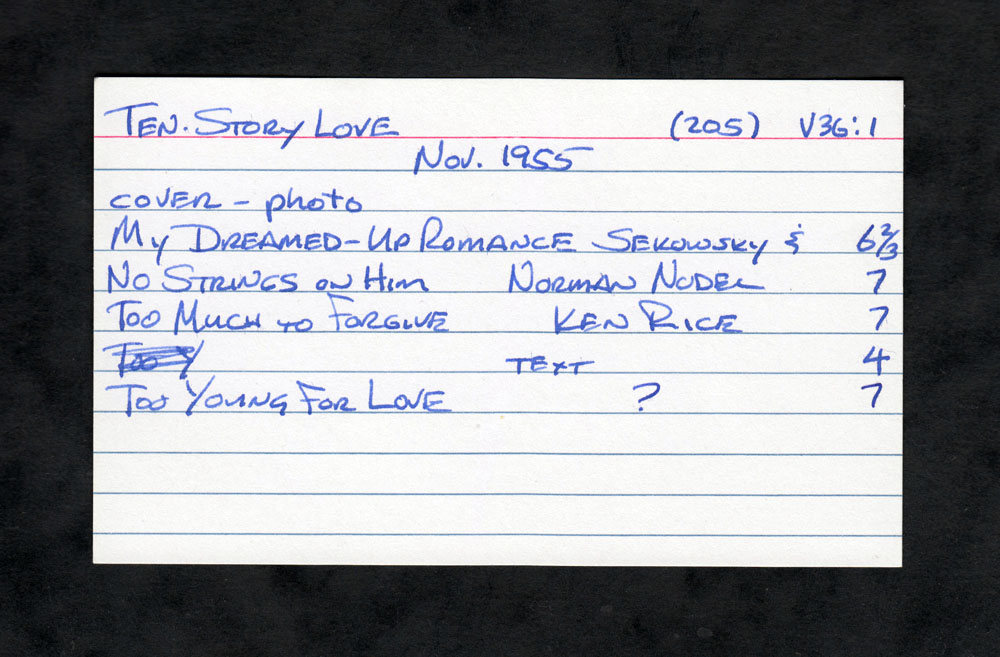 TEN-STORY LOVE (205) V36:1
NOV. 1955
COVER - photo
MY DREAMED-UP ROMANCE SEKOWSKY & 6 2/3
NO STRINGS ON HIM NORMAN NODEL 7
TOO MUCH TO FORGIVE KEN RICE 7
TOO Y TEXT 4
TOO YOUNG FOR LOVE ? 7